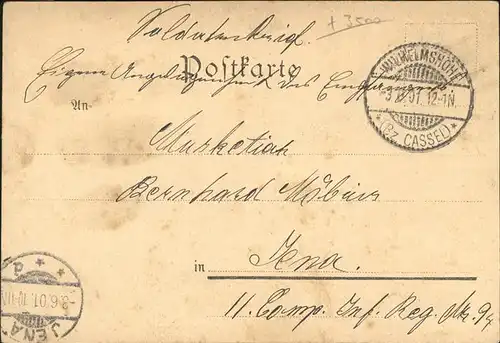 + 3500
Soldatenbrief.
Postkarte
Eigene Angelegenheit des Empfängers
WILHELMSHÖHE
-3.6.01. 12-1N.
* (Bz. CASSEL) *
An
Musketier
Bernhard Möbius
in Jena.
11. Comp. Inf. Reg. Nr. 94
JENA
-3.6.01.